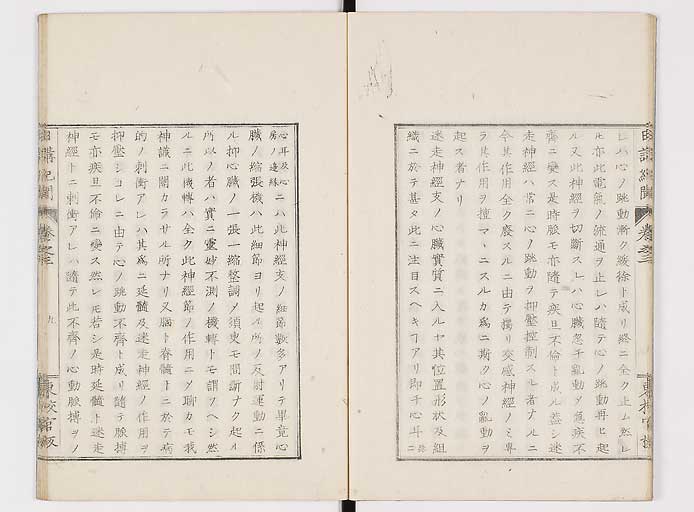 レハ心ノ跳動漸ク緩徐ト成リ終ニ全ク止ム然レ
ル亦此電氣ノ流通ヲ止レハ隨テ心ノ跳動再ヒ起
ル又此神經ヲ切斷スレハ心臓忽チ亂動ヲ急疾不
齊ニ變ス是時脈モ亦隨テ疾旦不倫ト成ル蓋シ迷
走神經ハ常ニ心ノ跳動ヲ抑壓控制スル者ナルニ
今其作用全ク廢スルニ由テ獨リ交感神經ノミ專
ラ其作用ヲ擅マヽニスルカ爲ニ斯ク心ノ亂動ヲ
起ス者ナリ
迷走神經支ノ心臓實質ニ入ルヤ其位置形狀及組
織ニ於テ甚タ此ニ注目スヘキヿアリ即チ心耳ニ
心耳及心
房ノ邊緣ニハ此神經支ノ細節數多アリテ畢竟心
臓ノ縮張機ハ此細節ヨリ起ル所ノ反射運動ニ係
ル抑心臓ノ一張一縮整調ノ須臾モ間斷ナク起ル
所以ノ者ハ實ニ靈妙不測ノ機轉ト モ謂ツヘシ然
ルニ此機轉ハ全ク此神經節ノ作用ニノ聊カモ我
神識ニ關カラサル所ナリ又腦ト脊髓トニ於テ病
的ノ刺衝アレハ其爲ニ延髓及迷走神經ノ作用ヲ
抑壓シコレニ由テ心ノ跳動不齊ト成リ隨テ脈搏
モ亦疾旦不倫ニ變ス然レ𪜈若シ是時延髓ト迷走
神經トニ刺衝アレハ隨テ此不齊ノ心動脈搏ヲノ
卷之三
九
東校官版